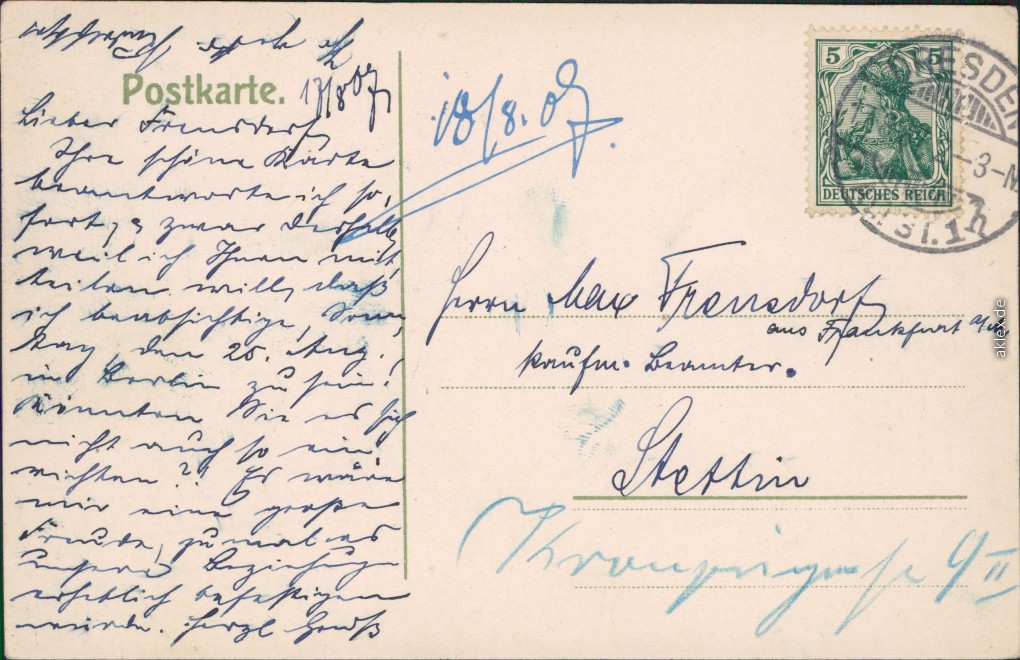 Postkarte.
17/8 07
Lieber Frensdorf
Ihre schöne Karte
beantworte ich so-
fort, u. zwar deshalb,
weil ich Ihnen mit-
teilen will, daß
ich beabsichtige, Sonn-
tag, den 25. Aug.
in Berlin zu sein!
Könnten Sie es sich
nicht auch so ein
richten?! Es wäre
mir eine große
Freude, zumal es
unsere Beziehungen
erheblich befestigen
würde. Herzl Gruß
18/8. 07.
5 5
DEUTSCHES REICH
DRESDEN
3-
1h
Herrn Max Frensdorf
aus Frankfurt a/M
Kaufm. Beamter.
Stettin
Kronprinzenstr 9 II
aklex.de